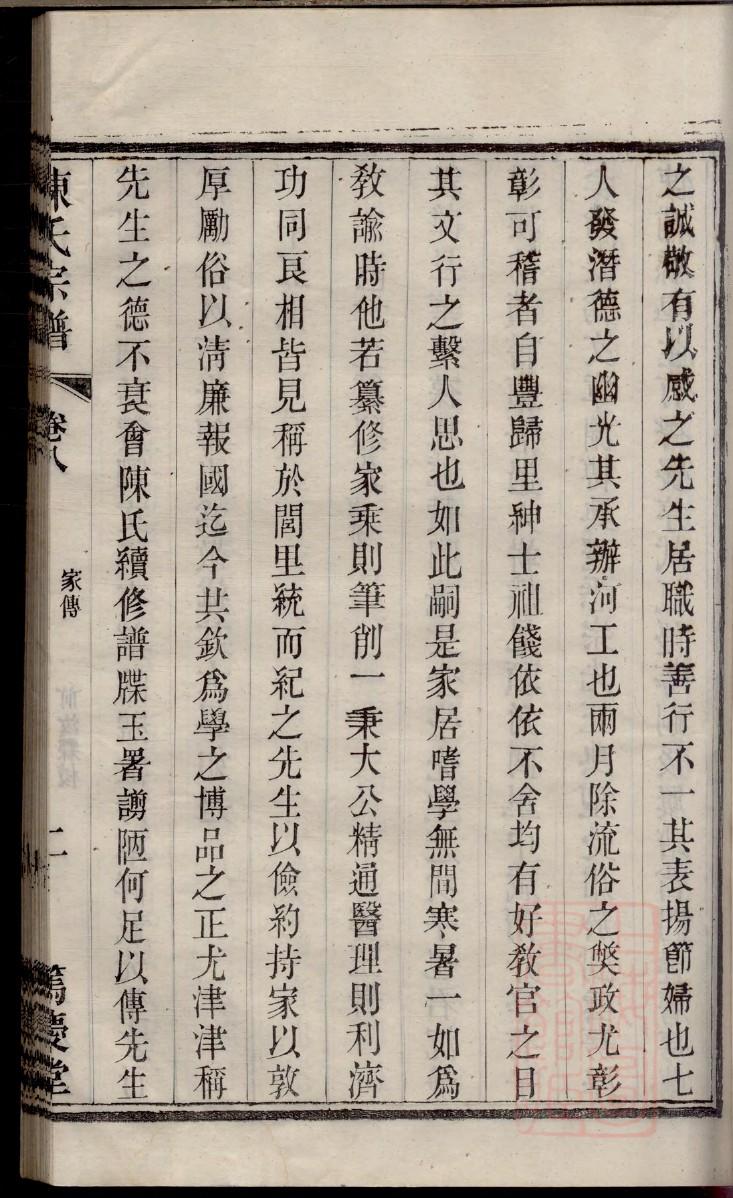 之誠敬有以感之先生居職時善行不一其表揚節婦也七
人發潛德之幽光其承辦河工也兩月除流俗之獘政尤彰
彰可稽者自豐歸里紳士祖餞依依不舍均有好教官之目
其文行之繫人思也如此嗣是家居嗜學無間寒暑一如為
教諭時他若纂修家乘則筆削一秉大公精通醫理則利濟
功同良相皆見稱於閭里統而紀之先生以儉約持家以敦
厚勵俗以淸廉報國迄今共欽爲學之博品之正尤津津稱
先生之德不衰會陳氏續修譜牒玉署謭陋何足以傳先生
陳氏宗譜
卷八
家傳
二
篤慶堂